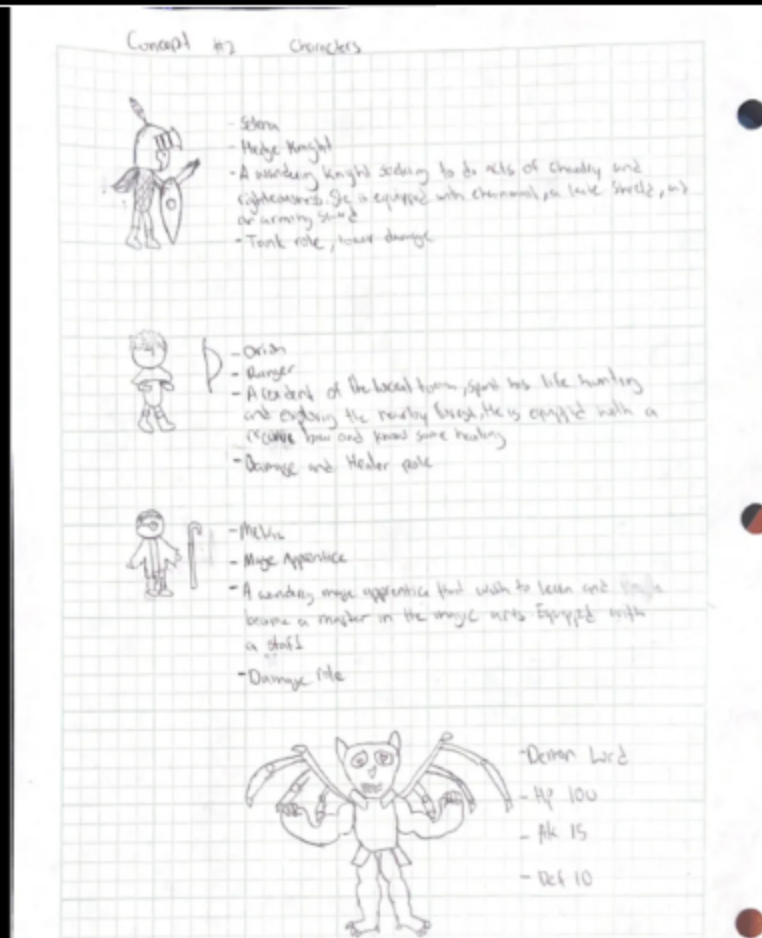 Concept #2 Characters
- Selena
- Hedge Knight
- A wandering knight seeking to do acts of chivalry and
righteousness. She is equipped with chainmail, a kite shield, and
an arming sword
- Tank role, lower damage
- Orion
- Ranger
- A resident of the local town, spent his life hunting
and exploring the nearby forest. He is equipped with a
recurve bow and knows some healing
- Damage and Healer role
- Mage Apprentice
- A wandering mage apprentice that wish to learn and
become a master in the magic arts Equipped with
a staff
- Damage role
- Demon Lord
- Hp 100
- Atk 15
- Def 10